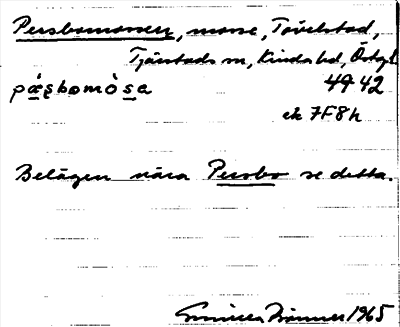 Persbomossen, mosse, Tåvelstad,
Tjärstads sn, Kinda hd, Östgl.
pæ̀sbomòsa 42
ek 7F8h
Belägen nära Persbo se detta.
1965